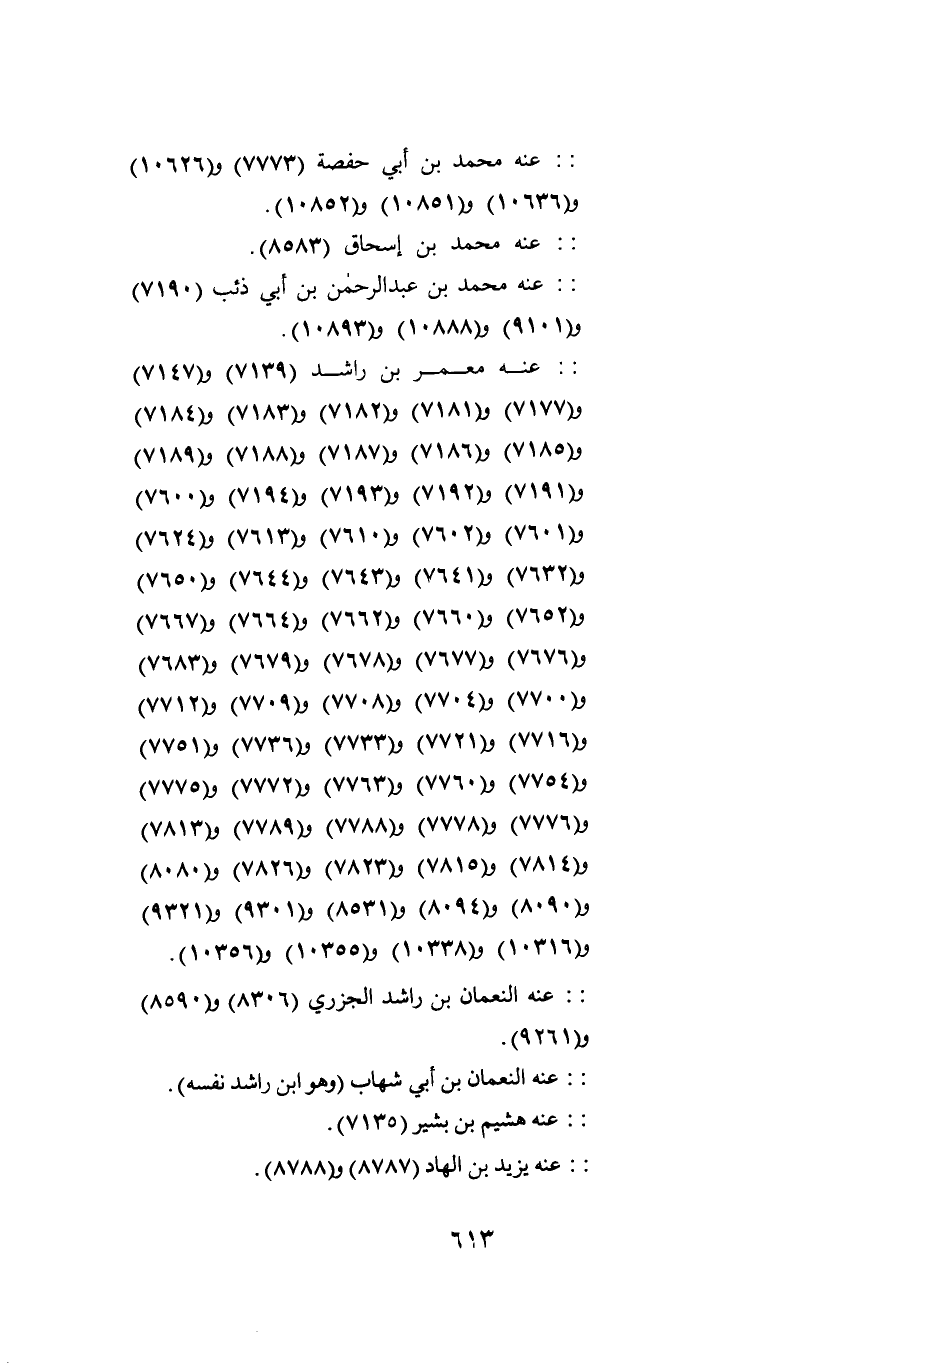 : : عنه محمد بن أبي حفصة (٧٧٧٣) و(١٠٦٢٦)
و(١٠٦٣٦) و(١٠٨٥١) و(١٠٨٥٢).
: : عنه محمد بن إسحاق (٨٥٨٣).
: : عنه محمد بن عبدالرحمٰن بن أبي ذئب (٧١٩٠)
و(٩١٠١) و(١٠٨٨٨) و(١٠٨٩٣).
: : عنـه معمـر بن راشـد (٧١٣٩) و(٧١٤٧)
و(٧١٧٧) و(٧١٨١) و(٧١٨٢) و(٧١٨٣) و(٧١٨٤)
و(٧١٨٥) و(٧١٨٦) و(٧١٨٧) و(٧١٨٨) و(٧١٨٩)
و(٧١٩١) و(٧١٩٢) و(٧١٩٣) و(٧١٩٤) و(٧٦٠٠)
و(٧٦٠١) و(٧٦٠٢) و(٧٦١٠) و(٧٦١٣) و(٧٦٢٤)
و(٧٦٣٢) و(٧٦٤١) و(٧٦٤٣) و(٧٦٤٤) و(٧٦٥٠)
و(٧٦٥٢) و(٧٦٦٠) و(٧٦٦٢) و(٧٦٦٤) و(٧٦٦٧)
و(٧٦٧٦) و(٧٦٧٧) و(٧٦٧٨) و(٧٦٧٩) و(٧٦٨٣)
و(٧٧٠٠) و(٧٧٠٤) و(٧٧٠٨) و(٧٧٠٩) و(٧٧١٢)
و(٧٧١٦) و(٧٧٢١) و(٧٧٣٣) و(٧٧٣٦) و(٧٧٥١)
و(٧٧٥٤) و(٧٧٦٠) و(٧٧٦٣) و(٧٧٧٢) و(٧٧٧٥)
و(٧٧٧٦) و(٧٧٧٨) و(٧٧٨٨) و(٧٧٨٩) و(٧٨١٣)
و(٧٨١٤) و(٧٨١٥) و(٧٨٢٣) و(٧٨٢٦) و(٨٠٨٠)
و(٨٠٩٠) و(٨٠٩٤) و(٨٥٣١) و(٩٣٠١) و(٩٣٢١)
و(١٠٣١٦) و(١٠٣٣٨) و(١٠٣٥٥) و(١٠٣٥٦).
: : عنه النعمان بن راشد الجزري (٨٣٠٦) و(٨٥٩٠)
و(٩٢٦١).
: : عنه النعمان بن أبي شهاب (وهو ابن راشد نفسه).
: : عنه هشيم بن بشير (٧١٣٥).
: : عنه يزيد بن الهاد (٨٧٨٧) و(٨٧٨٨).
٦١٣